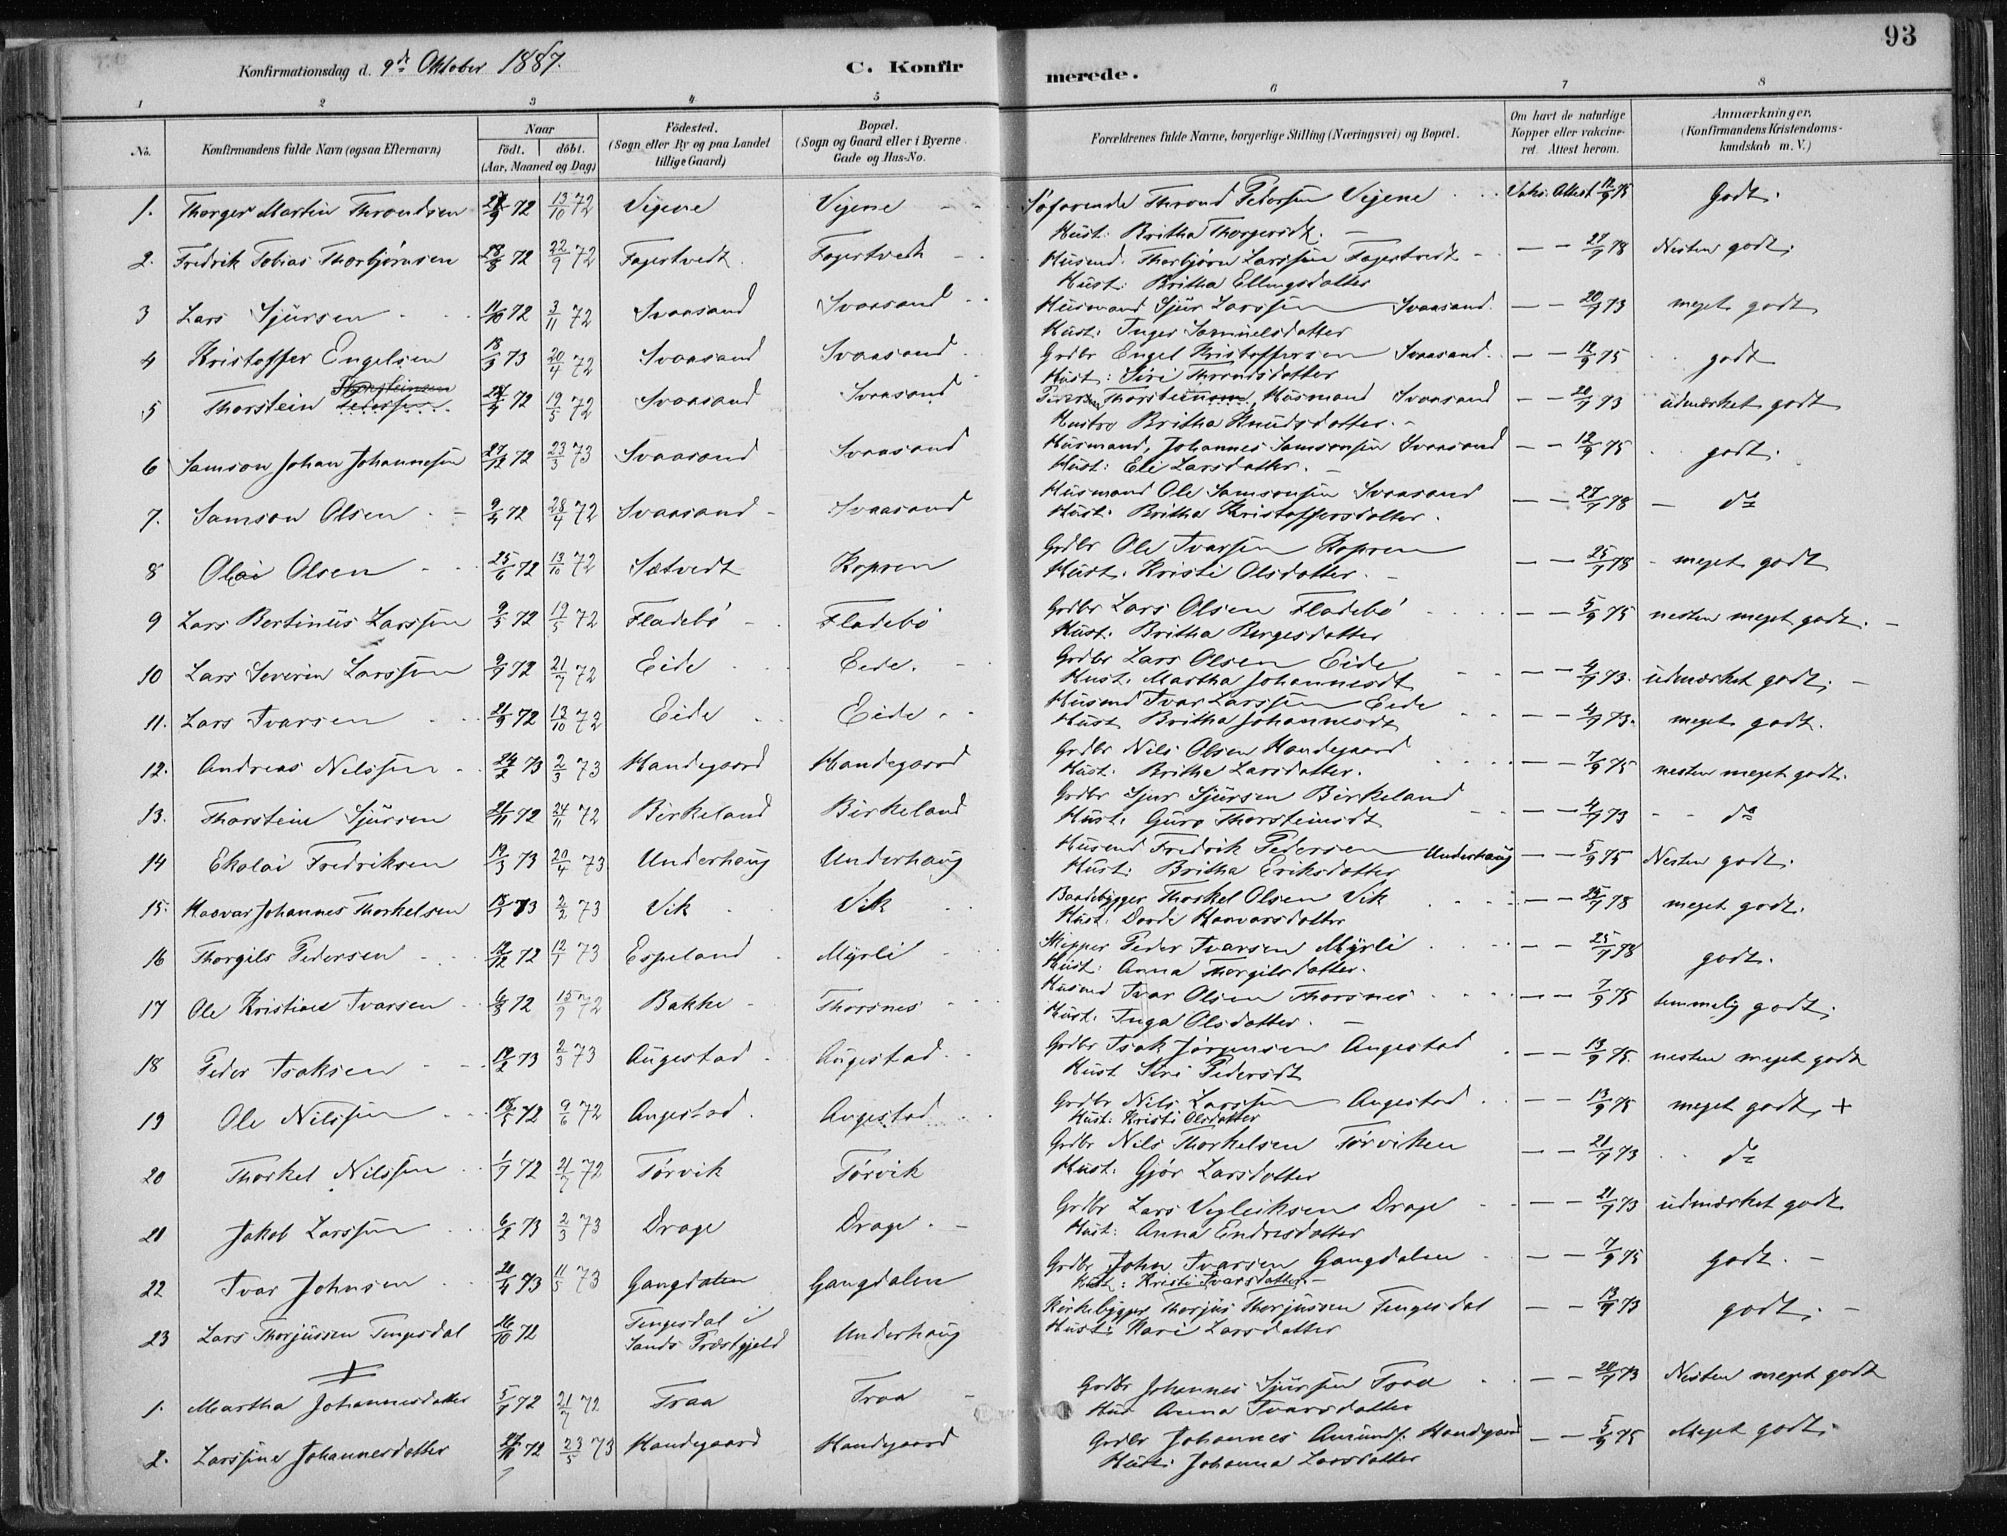 93
Konfirmationsdag d. 9de Oktober 1887. C. Konfirmerede.
1 2 3 4 5 6 7 8
No. Konfirmandens fulde Navn (ogsaa Efternavn) Naar født. døbt. (Aar, Maaned og Dag) Fødested. (Sogn eller By og paa Landet tillige Gaard) Bopæl. (Sogn og Gaard eller i Byerne Gade og Hus-No. Forældrenes fulde Navne, borgerlige Stilling (Næringsvei) og Bopæl. Om havt de naturlige Kopper eller vakcineret. Attest herom. Anmærkninger. (Konfirmandens Kristendomskundskab m. V.)
1. Thorger Martin Throndsen 72 13/10 72 Vigene Vigene Søfarende Thrond Pedersen Vigene Vakc. Attest 12/9 75 Godt.
Hust: Britha Thorgersdt.
2. Fredrik Tobias Thorbjørnsen 72 22/9 72 Fagertvedt Fagertvedt Husmd. Thorbjørn Larssen Fagertvedt — — 27/9 78 Nesten godt.
Hust: Britha Ellingsdatter
3 Lars Sjursen 11/10 72 3/11 72 Svaasand Svaasand Husmand Sjur Larssen Svaasand — — 20/9 73 meget godt
Hust: Inger Samuelsdatter
4 Kristoffer Engelsen 18/3 73 20/4 72 Svaasand Svaasand Grdbr Engel Kristoffersen Svaasand — — 12/9 75 godt
Hust: Siri Throndsdatter
5 Thorstein Pedersen 72 19/5 72 Svaasand Svaasand Thorsteinsen, Husmand Svaasand — — 20/9 73 udmærket godt
Hustro Britha Knudsdatter
6 Samson Johan Johannesen 27/12 72 23/3 73 Svaasand Svaasand Husmand, Johannes Samsonsen Svaasand — — 12/9 75 godt.
Hust: Eli Larsdatter
7. Samson Olsen 9/4 72 28/4 72 Svaasand Svaasand Husmand Ole Samsonsen Svaasand — — 27/9 78 — do
Hust: Britha Kristoffersdatter
8 Olai Olsen 25/6 72 13/10 72 Sætvedt Kopren Grdbr Ole Ivarsen Kopren — — 25/9 78 meget godt
Hust. Kristi Olsdatter
9 Lars Bertinus Larssen 9/5 72 19/5 72 Fladebø Fladebø Grdbr Lars Olsen Fladebø — — 5/9 75 nesten meget godt.
Hust: Britha Bergesdatter
10 Lars Severin Larssen 9/7 72 21/7 72 Eide Eide. Grdbr Lars Olsen Eide — — 4/9 73. udmærket godt.
Hust. Martha Johannesdt
11. Lars Ivarsen 21/9 72 13/10 72 Eide Eide Husmd Ivar Larssen Eide — — 4/9 73. meget godt.
Hust Britha Johannesdt
12. Andreas Nilssen 24/2 73 2/3 73 Handegaard Handegaard Grdbr Nils Olsen Handegaard — — 7/9 75 nesten meget godt.
Hust: Britha Larsdatter.
13. Thorstein Sjursen 72 24/11 72 Birkeland Birkeland Grdbr Sjur Sjursen Birkeland — — 4/9 73 do
Hust. Guro Thorsteinsdt
14 Ekolai Fredriksen 19/3 73 20/4 73 Underhaug Underhaug Husmd Fredrik Pedersen Underhaug — — 5/9 75 Nesten godt.
Hust: Britha Eriksdatter
15. Haavar Johannes Thorkelsen 73 2/2 73 Vik Vik Baadebygger Thorkel Olsen Vik — — 78 meget godt.
Hust: Dorde Haavarsdatter
16 Thorgils Pedersen 12/12 72 12/1 73 Espeland Myrli Skipper Peder Ivarsen Myrli — — 25/9 78 godt.
Hust: Anna Thorgilsdatter.
17 Ole Kristian Ivarsen 6/8 72 15/9 72 Bakke Thorsnes Husmd Ivar Olsen Thorsnes — — 7/9 75 temmelig godt.
Hust. Inga Olsdatter.
18 Peder Isaksen 73 2/3 73 Augestad Augestad Grdbr Isak Jørgensen Augestad — — 13/9 75. nesten meget godt
Hust Siri Pedersdt
19 Ole Nilssen 18/5 72 9/6 72 Augestad. Augestad Grdbr Nils Larssen Augestad — — 13/9 75 meget godt +
Hust. Kristi Olsdatter
20 Thorkel Nilssen 1/7 72 21/7 72 Tørvik Tørvik Grdbr Nils Thorkelsen Tørviken — — 21/9 73 do
Hust: Gjør Larsdatter
21 Jakob Larssen 6/2 73 2/3 73 Drage Drage. Grdbr Lars Vigleiksen Drage — — 21/9 73 udmærket godt
Hust: Anna Endresdatter
22 Ivar Johnsen 73 11/5 73 Gangdalen Gangdalen Grdbr John Ivarsen Gangdalen — — 7/9 75 godt.
Hust: Kristi Ivarsdatter
23 Lars Thorjussen Tengesdal 26/10 72 Tengesdal i Sands Præstgjeld Underhaug Kirkebygger Thorjus Thorjussen Tengesdal — — 13/9 73 godt.
Hust: Kari Larsdatter
1. Martha Johannesdatter 5/7 72 21/7 72 Traa Traa Grdbr Johannes Sjursen Traa — — 20/9 73 Nesten meget godt
Hus Anna Ivarsdatter
2. Larssine Johannesdatter 72 23/5 73 Handegaard Handegaard Grdbr Johannes Amunds. Handegaard — — 5/9 75 Meget godt.
Hust: Johanna Larsdatter